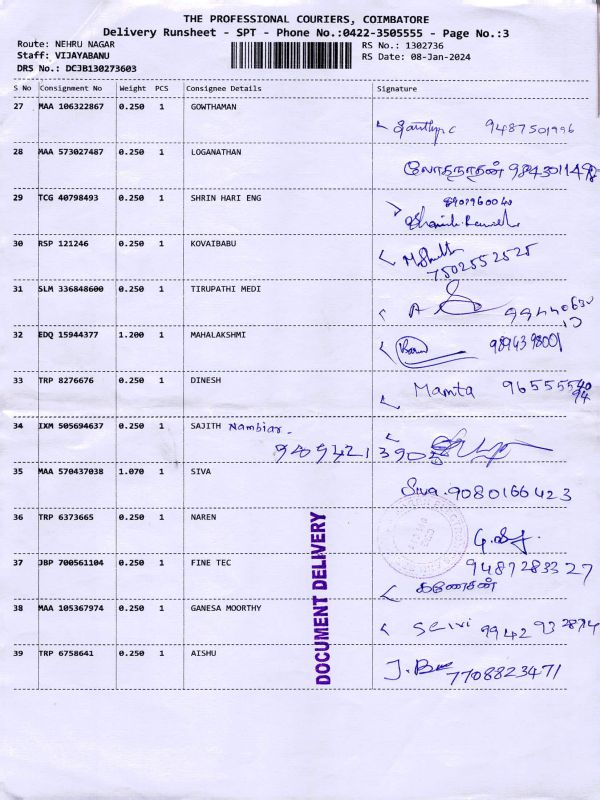 THE PROFESSIONAL COURIERS, COIMBATORE
Delivery Runsheet - SPT - Phone No.:0422-3505555 - Page No.:3
Route: NEHRU NAGAR RS No.: 1302736
Staff: VIJAYABANU RS Date: 08-Jan-2024
DRS No.: DCJB130273603
S No Consignment No Weight PCS Consignee Details Signature
27 MAA 106322867 0.250 1 GOWTHAMAN
9487501996
28 MAA 573027487 0.250 1 LOGANATHAN
லோகநாதன் 9843011498
29 TCG 40798493 0.250 1 SHRIN HARI ENG
30 RSP 121246 0.250 1 KOVAIBABU
7502552525
31 SLM 336848600 0.250 1 TIRUPATHI MEDI
32 EDQ 15944377 1.200 1 MAHALAKSHMI
9894398001
33 TRP 8276676 0.250 1 DINESH
Mamta 9655554094
34 IXM 505694637 0.250 1 SAJITH Nambiar
35 MAA 570437038 1.070 1 SIVA
Siva. 9080166423
36 TRP 6373665 0.250 1 NAREN
37 JBP 700561104 0.250 1 FINE TEC
9487283327
கணேசன்
38 MAA 105367974 0.250 1 GANESA MOORTHY
Selvi 9942932874
39 TRP 6758641 0.250 1 AISHU
7708823471
DOCUMENT DELIVERY